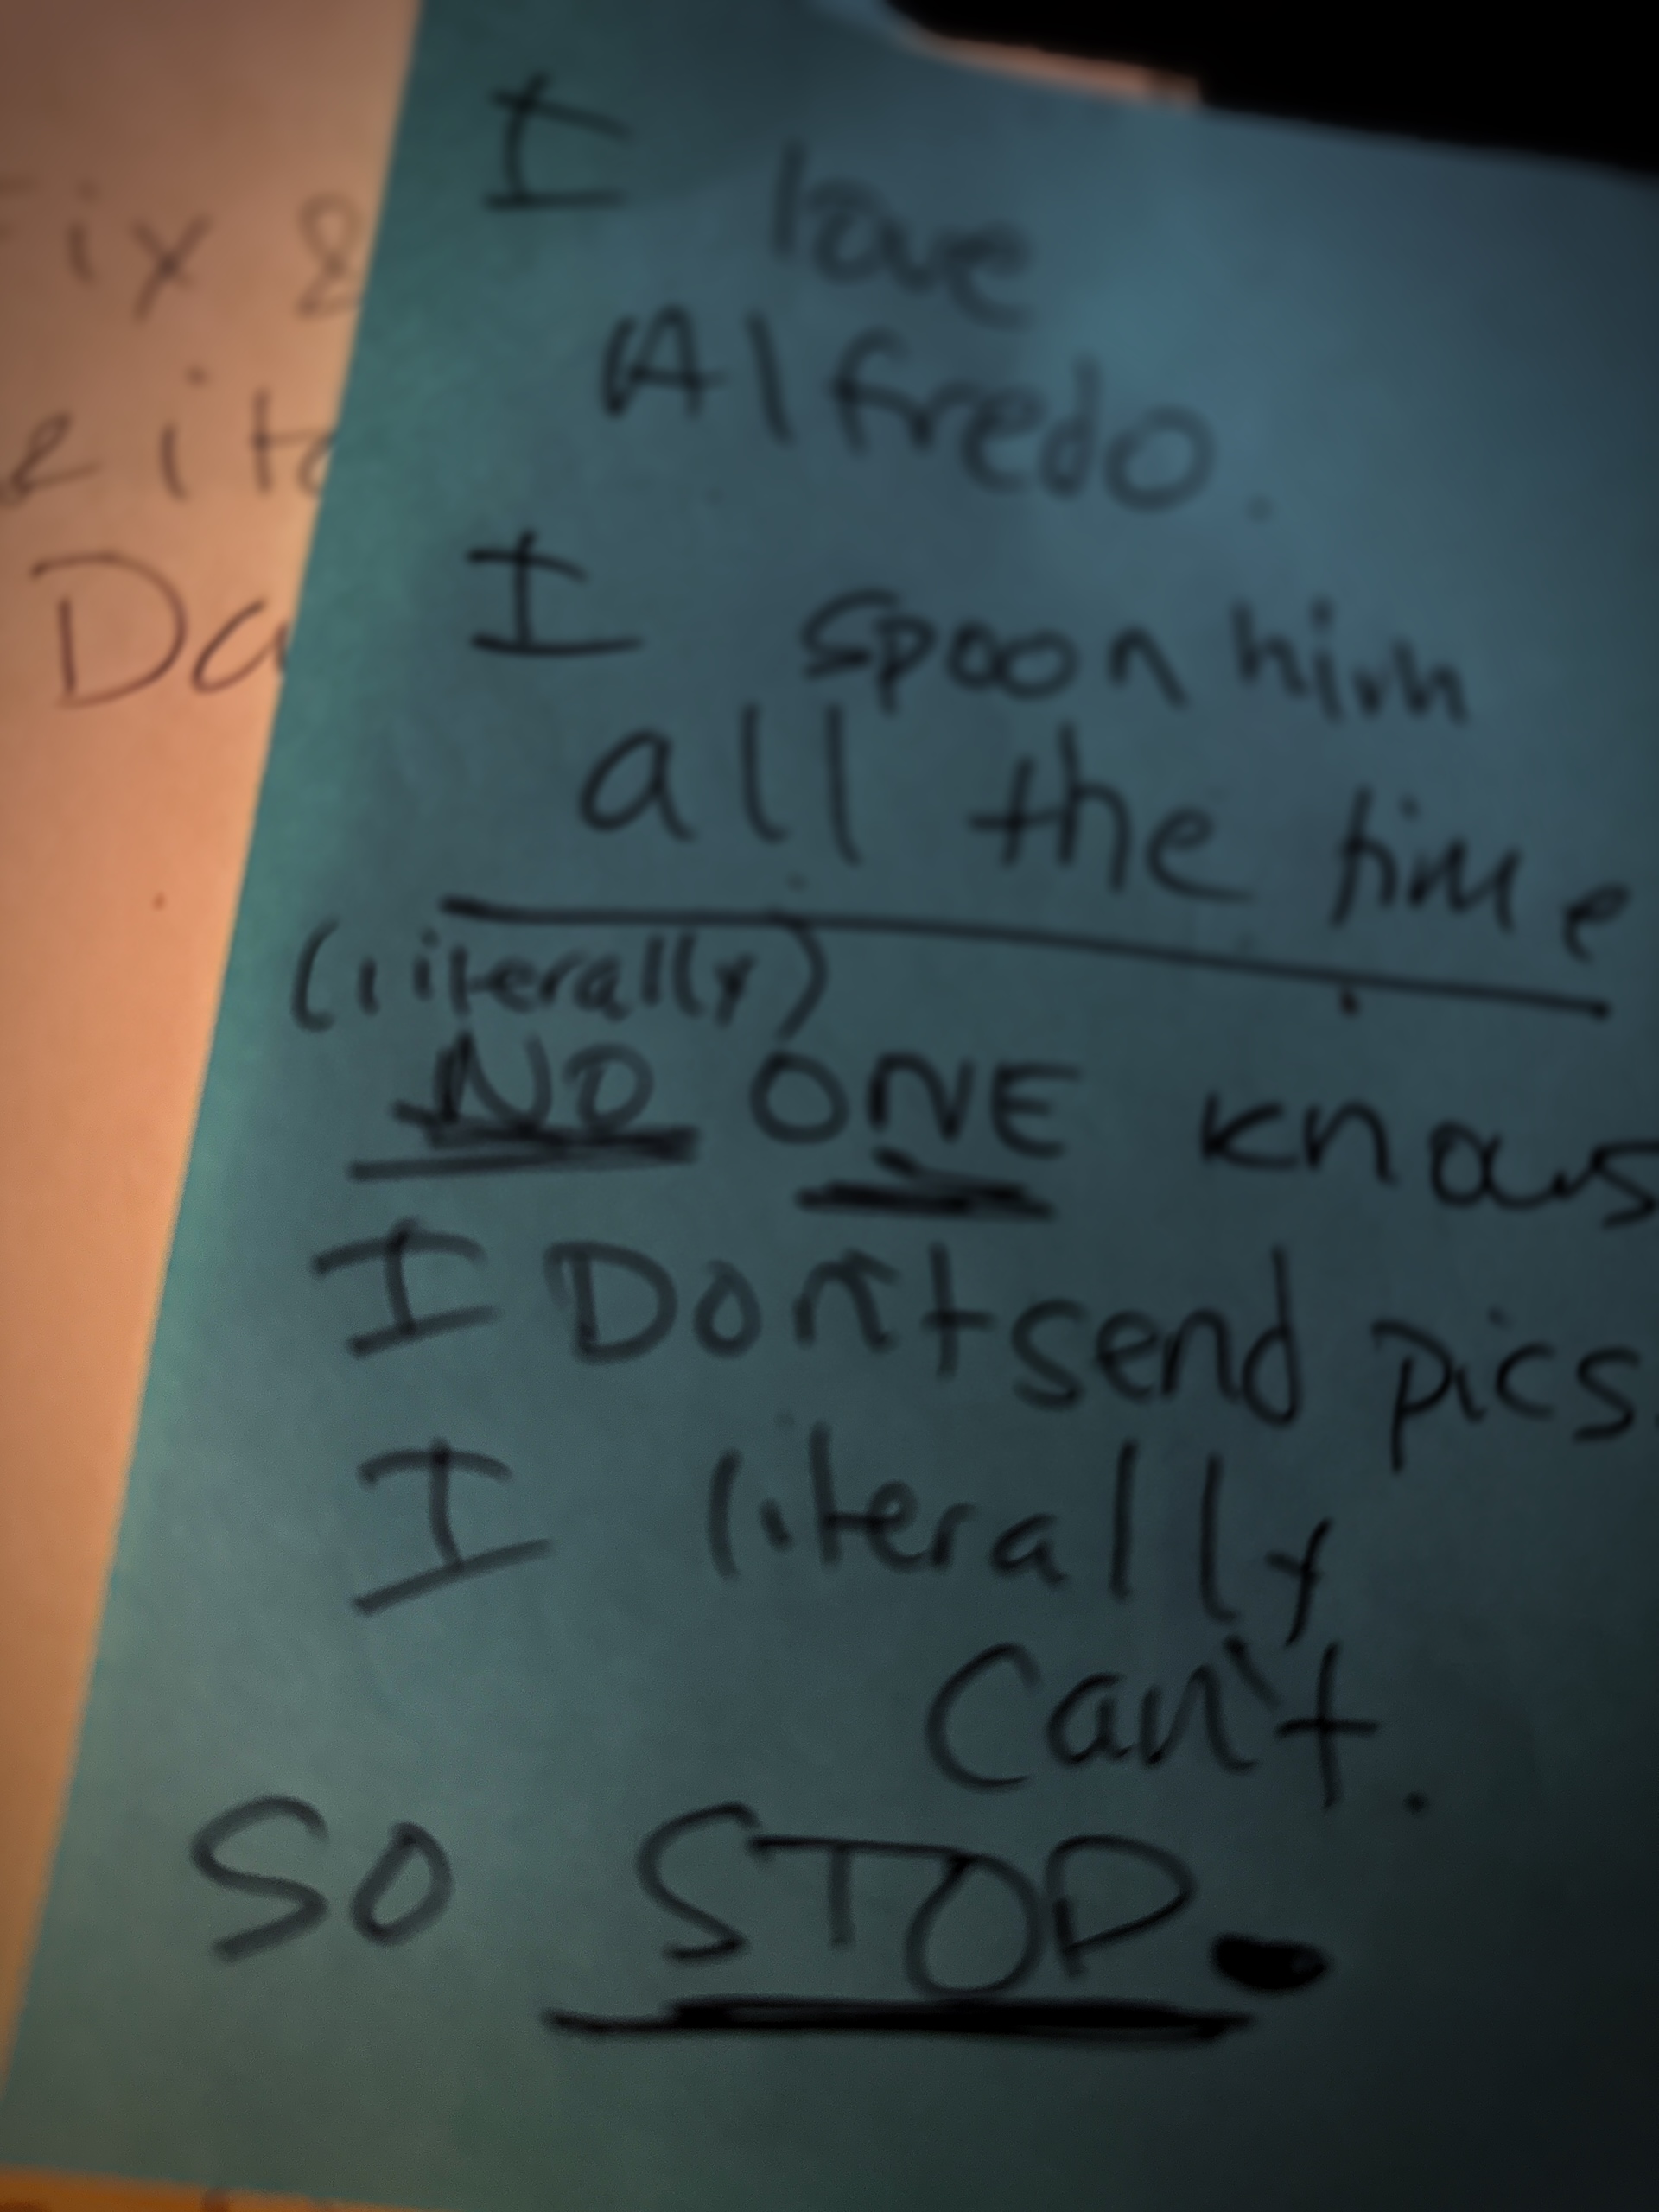 I love
Alfredo.
I spoon him
all the time
(literally)
NO ONE knows
I Don't send pics.
I literally
Can't.
SO STOP.
ix &
e it
Da